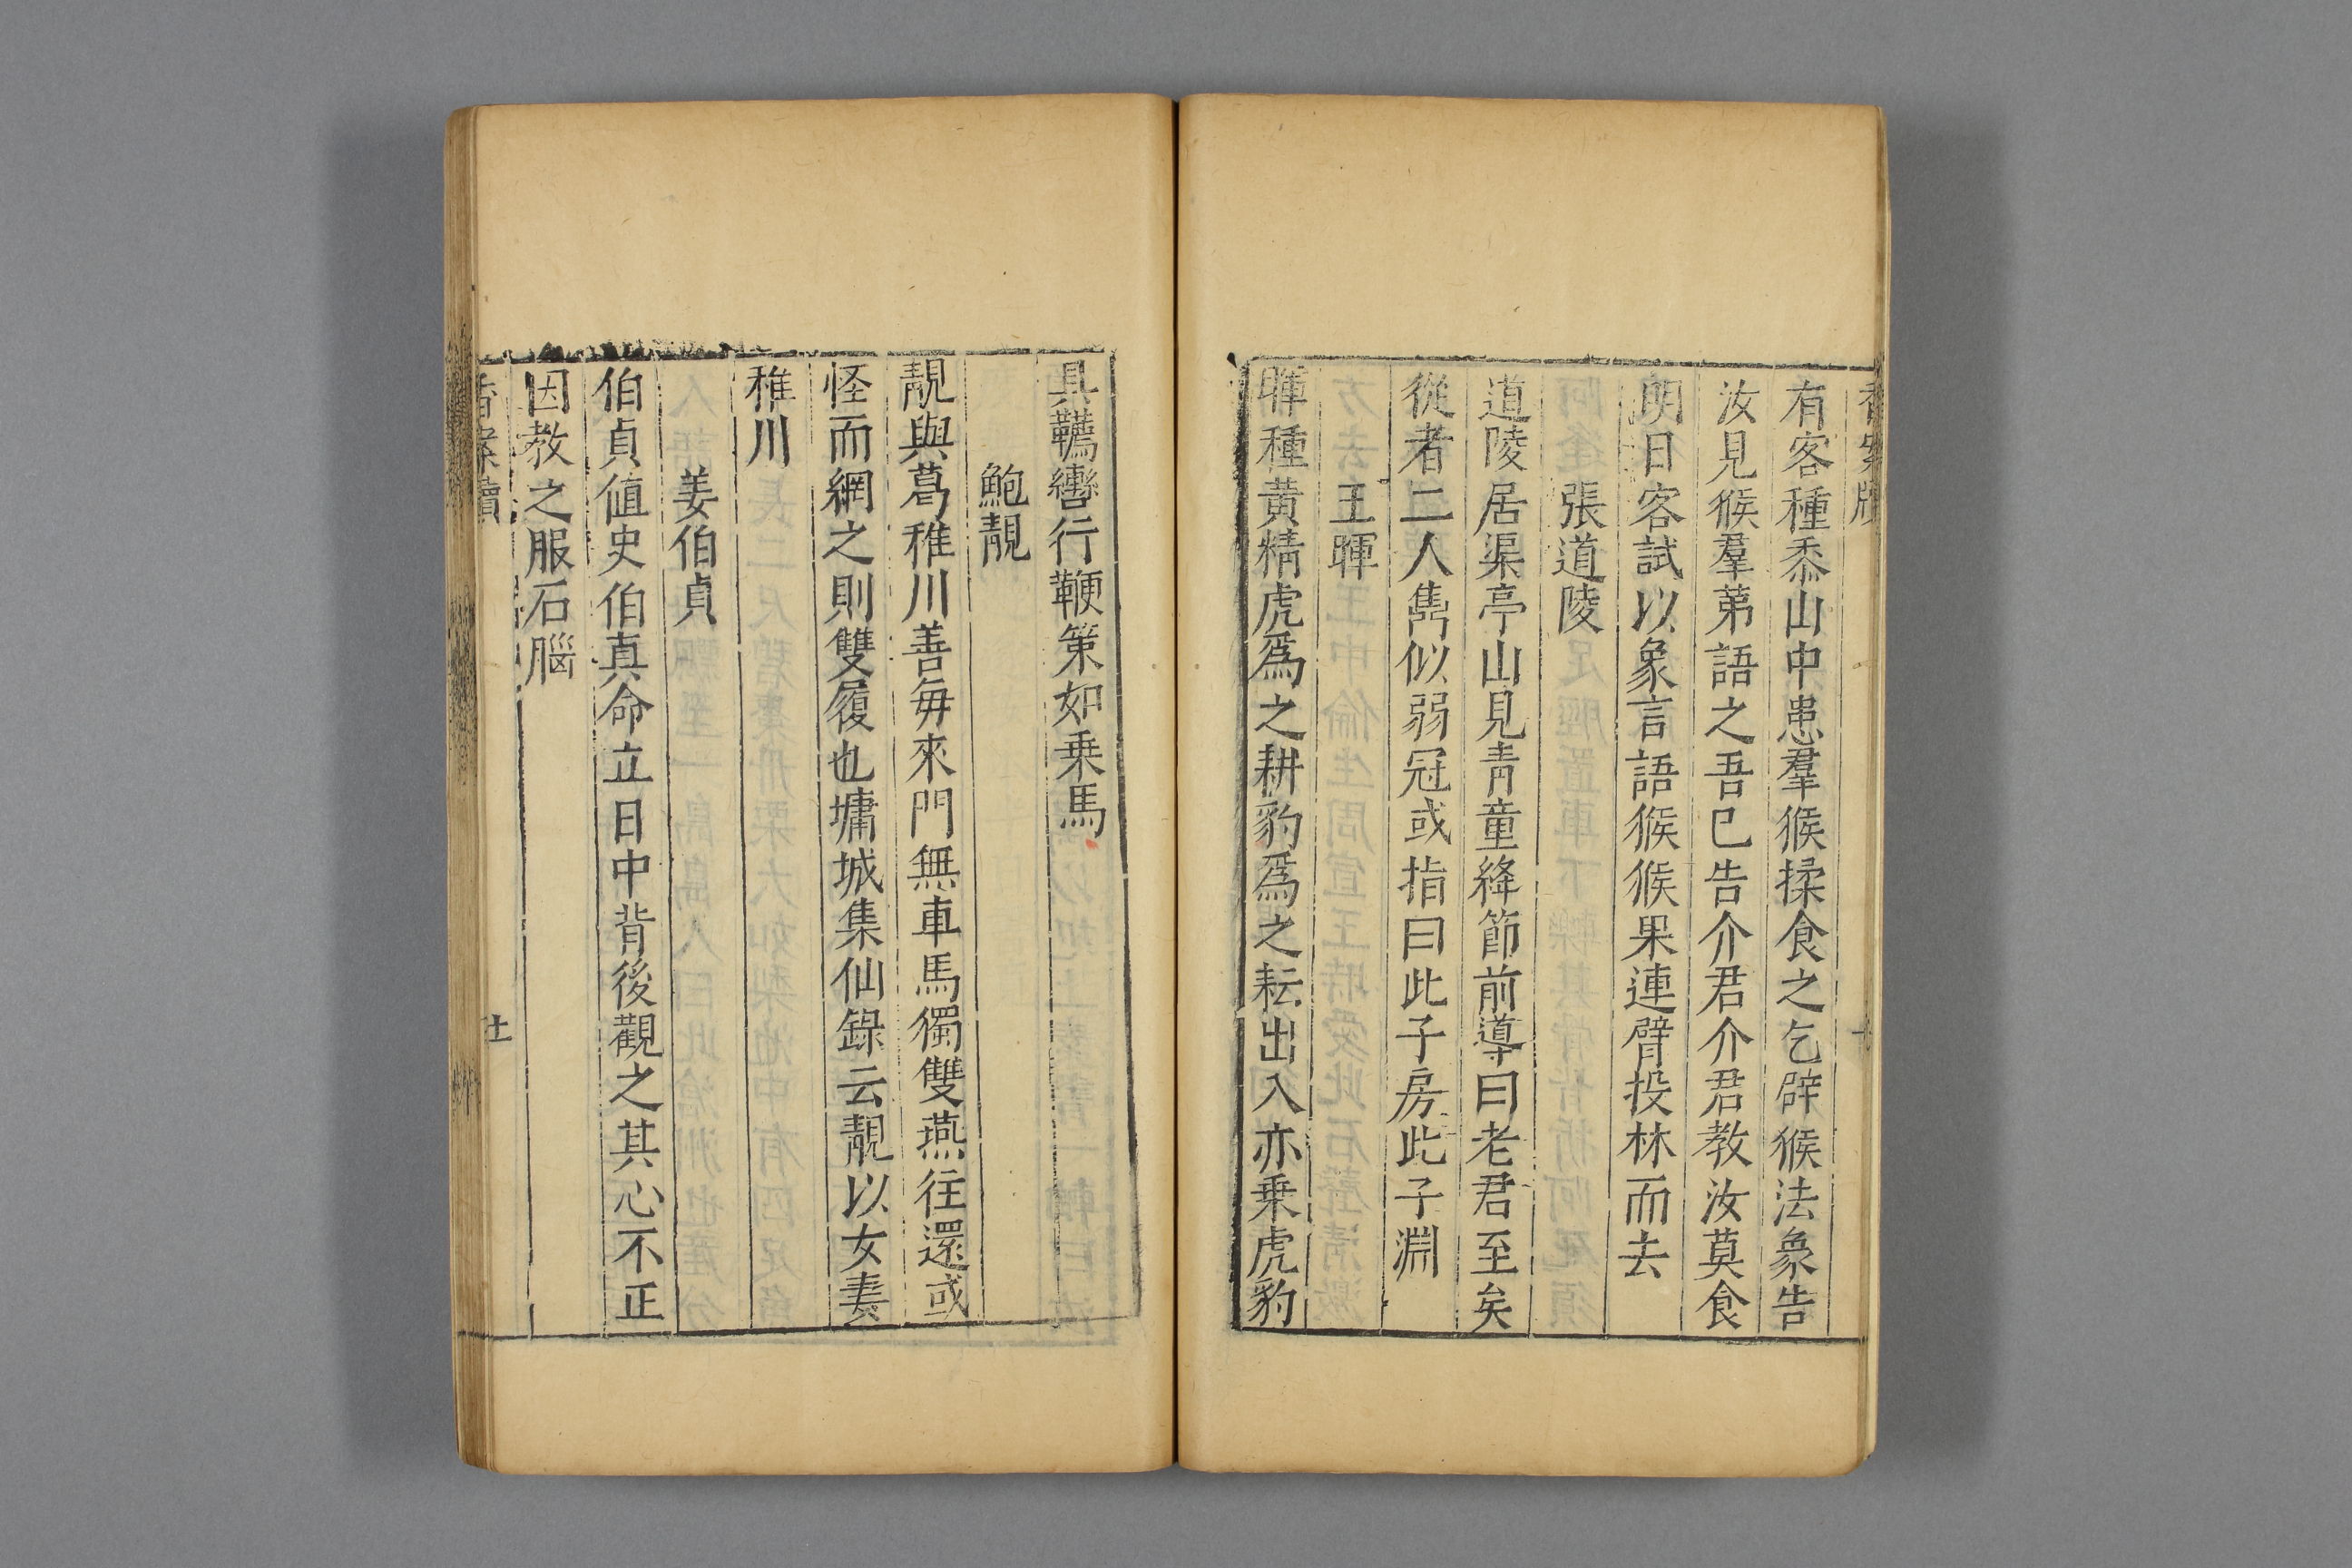 有客種黍山中患羣猴揉食之乞辟猴法象告
汝見猴羣第語之吾已告介君介君教汝莫食
明日客試以象言語猴猴果連臂投林而去
張道陵
道陵居渠亭山見青童絳節前導曰老君至矣
從者二人雋似弱冠或指曰此子房此子淵
王暉
暉種黃精虎爲之耕豹爲之耘出入亦乗虎豹
具韉轡行鞭策如乗馬
鮑靚
靚與葛稚川善每來門無車馬獨雙燕往還或
怪而網之則雙履也墉城集仙錄云靚以女妻
稚川
姜伯貞
伯貞值史伯真命立日中背後觀之其心不正
因教之服石腦
香案牘
十一